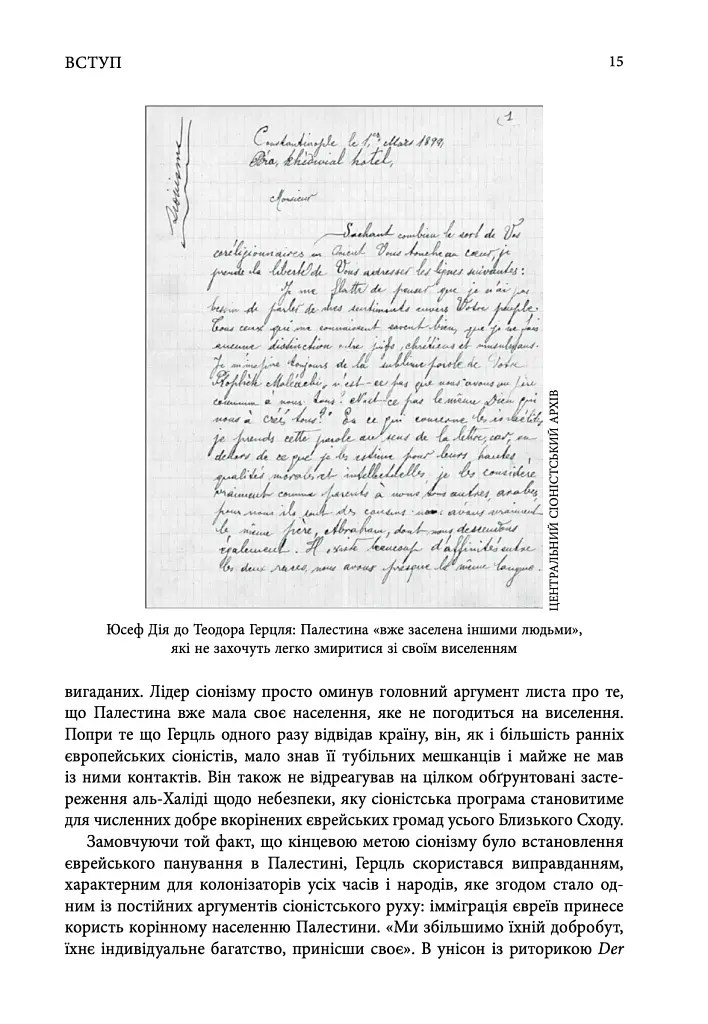 ВСТУП 15
1
Sionisme
Constantinople le 1er Mars 1899,
Péra, Khédivial hôtel,
Monsieur
Sachant combien le sort de Vos
coréligionnaires en Orient Vous touche au cœur, je
prends la liberté de Vous adresser les lignes suivantes:
Je me flatte de penser que je n'ai pas
besoin de parler de mes sentiments envers Votre peuple.
Tous ceux qui me connaissent savent bien, que je ne fais
aucune distinction entre juifs, chrétiens et musulmans.
Je m'inspire toujours de la sublime parole de Votre
Prophète Malachi, n'est-ce pas que nous avons un père
commun à nous tous? N'est-ce pas le même Dieu qui
nous à créés tous? En ce qui concerne les israélites
je prends cette parole au sens de la lettre, car, en
dehors de ce que je les estime pour leurs hautes
qualités morales et intellectuelles, je les considère
vraiment comme parents à nous tous autres, arabes,
pour nous ils sont des cousins nous avons vraiment
le même père, Abraham, dont nous descendons
également. Il existe beaucoup d'affinités entre
les deux races, nous avons presque la même langue.
ЦЕНТРАЛЬНИЙ СІОНІСТСЬКИЙ АРХІВ
Юсеф Дія до Теодора Герцля: Палестина «вже заселена іншими людьми»,
які не захочуть легко змиритися зі своїм виселенням
вигаданих. Лідер сіонізму просто оминув головний аргумент листа про те,
що Палестина вже мала своє населення, яке не погодиться на виселення.
Попри те що Герцль одного разу відвідав країну, він, як і більшість ранніх
європейських сіоністів, мало знав її тубільних мешканців і майже не мав
із ними контактів. Він також не відреагував на цілком обґрунтовані засте-
реження аль-Халіді щодо небезпеки, яку сіоністська програма становитиме
для численних добре вкорінених єврейських громад усього Близького Сходу.
Замовчуючи той факт, що кінцевою метою сіонізму було встановлення
єврейського панування в Палестині, Герцль скористався виправданням,
характерним для колонізаторів усіх часів і народів, яке згодом стало од-
ним із постійних аргументів сіоністського руху: імміграція євреїв принесе
користь корінному населенню Палестини. «Ми збільшимо їхній добробут,
їхнє індивідуальне багатство, принісши своє». В унісон із риторикою Der